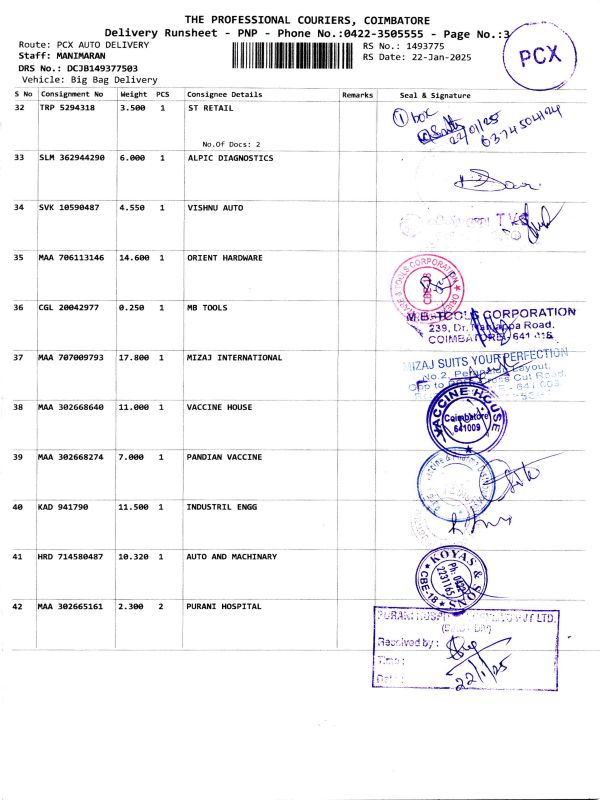 THE PROFESSIONAL COURIERS, COIMBATORE
Delivery Runsheet - PNP - Phone No.:0422-3505555 - Page No.:3
Route: PCX AUTO DELIVERY
RS No.: 1493775
Staff: MANIMARAN
RS Date: 22-Jan-2025
DRS No.: DCJB149377503
Vehicle: Big Bag Delivery
PCX
S No Consignment No Weight PCS Consignee Details Remarks Seal & Signature
32 TRP 5294318 3.500 1 ST RETAIL
No.Of Docs: 2
① box
22/01/25
6374504124
33 SLM 362944290 6.000 1 ALPIC DIAGNOSTICS
34 SVK 10590487 4.550 1 VISHNU AUTO
35 MAA 706113146 14.600 1 ORIENT HARDWARE
& TOOLS CORPORATION
CBE-18
36 CGL 20042977 0.250 1 MB TOOLS
M.B. TOOLS CORPORATION
239, Dr. Road,
COIMBATORE - 641
37 MAA 707009793 17.800 1 MIZAJ INTERNATIONAL
MIZAJ SUITS YOUR PERFECTION
No.2, Layout,
Opp to Cross Cut Road,
38 MAA 302668640 11.000 1 VACCINE HOUSE
VACCINE HOUSE
Coimbatore
641009
39 MAA 302668274 7.000 1 PANDIAN VACCINE
40 KAD 941790 11.500 1 INDUSTRIL ENGG
41 HRD 714580487 10.320 1 AUTO AND MACHINARY
KOYAS & SONS
CBE-18
Ph: 0422
2231165
42 MAA 302665161 2.300 2 PURANI HOSPITAL
PVT LTD.
Received by :
Time :
Date :
22/1/25